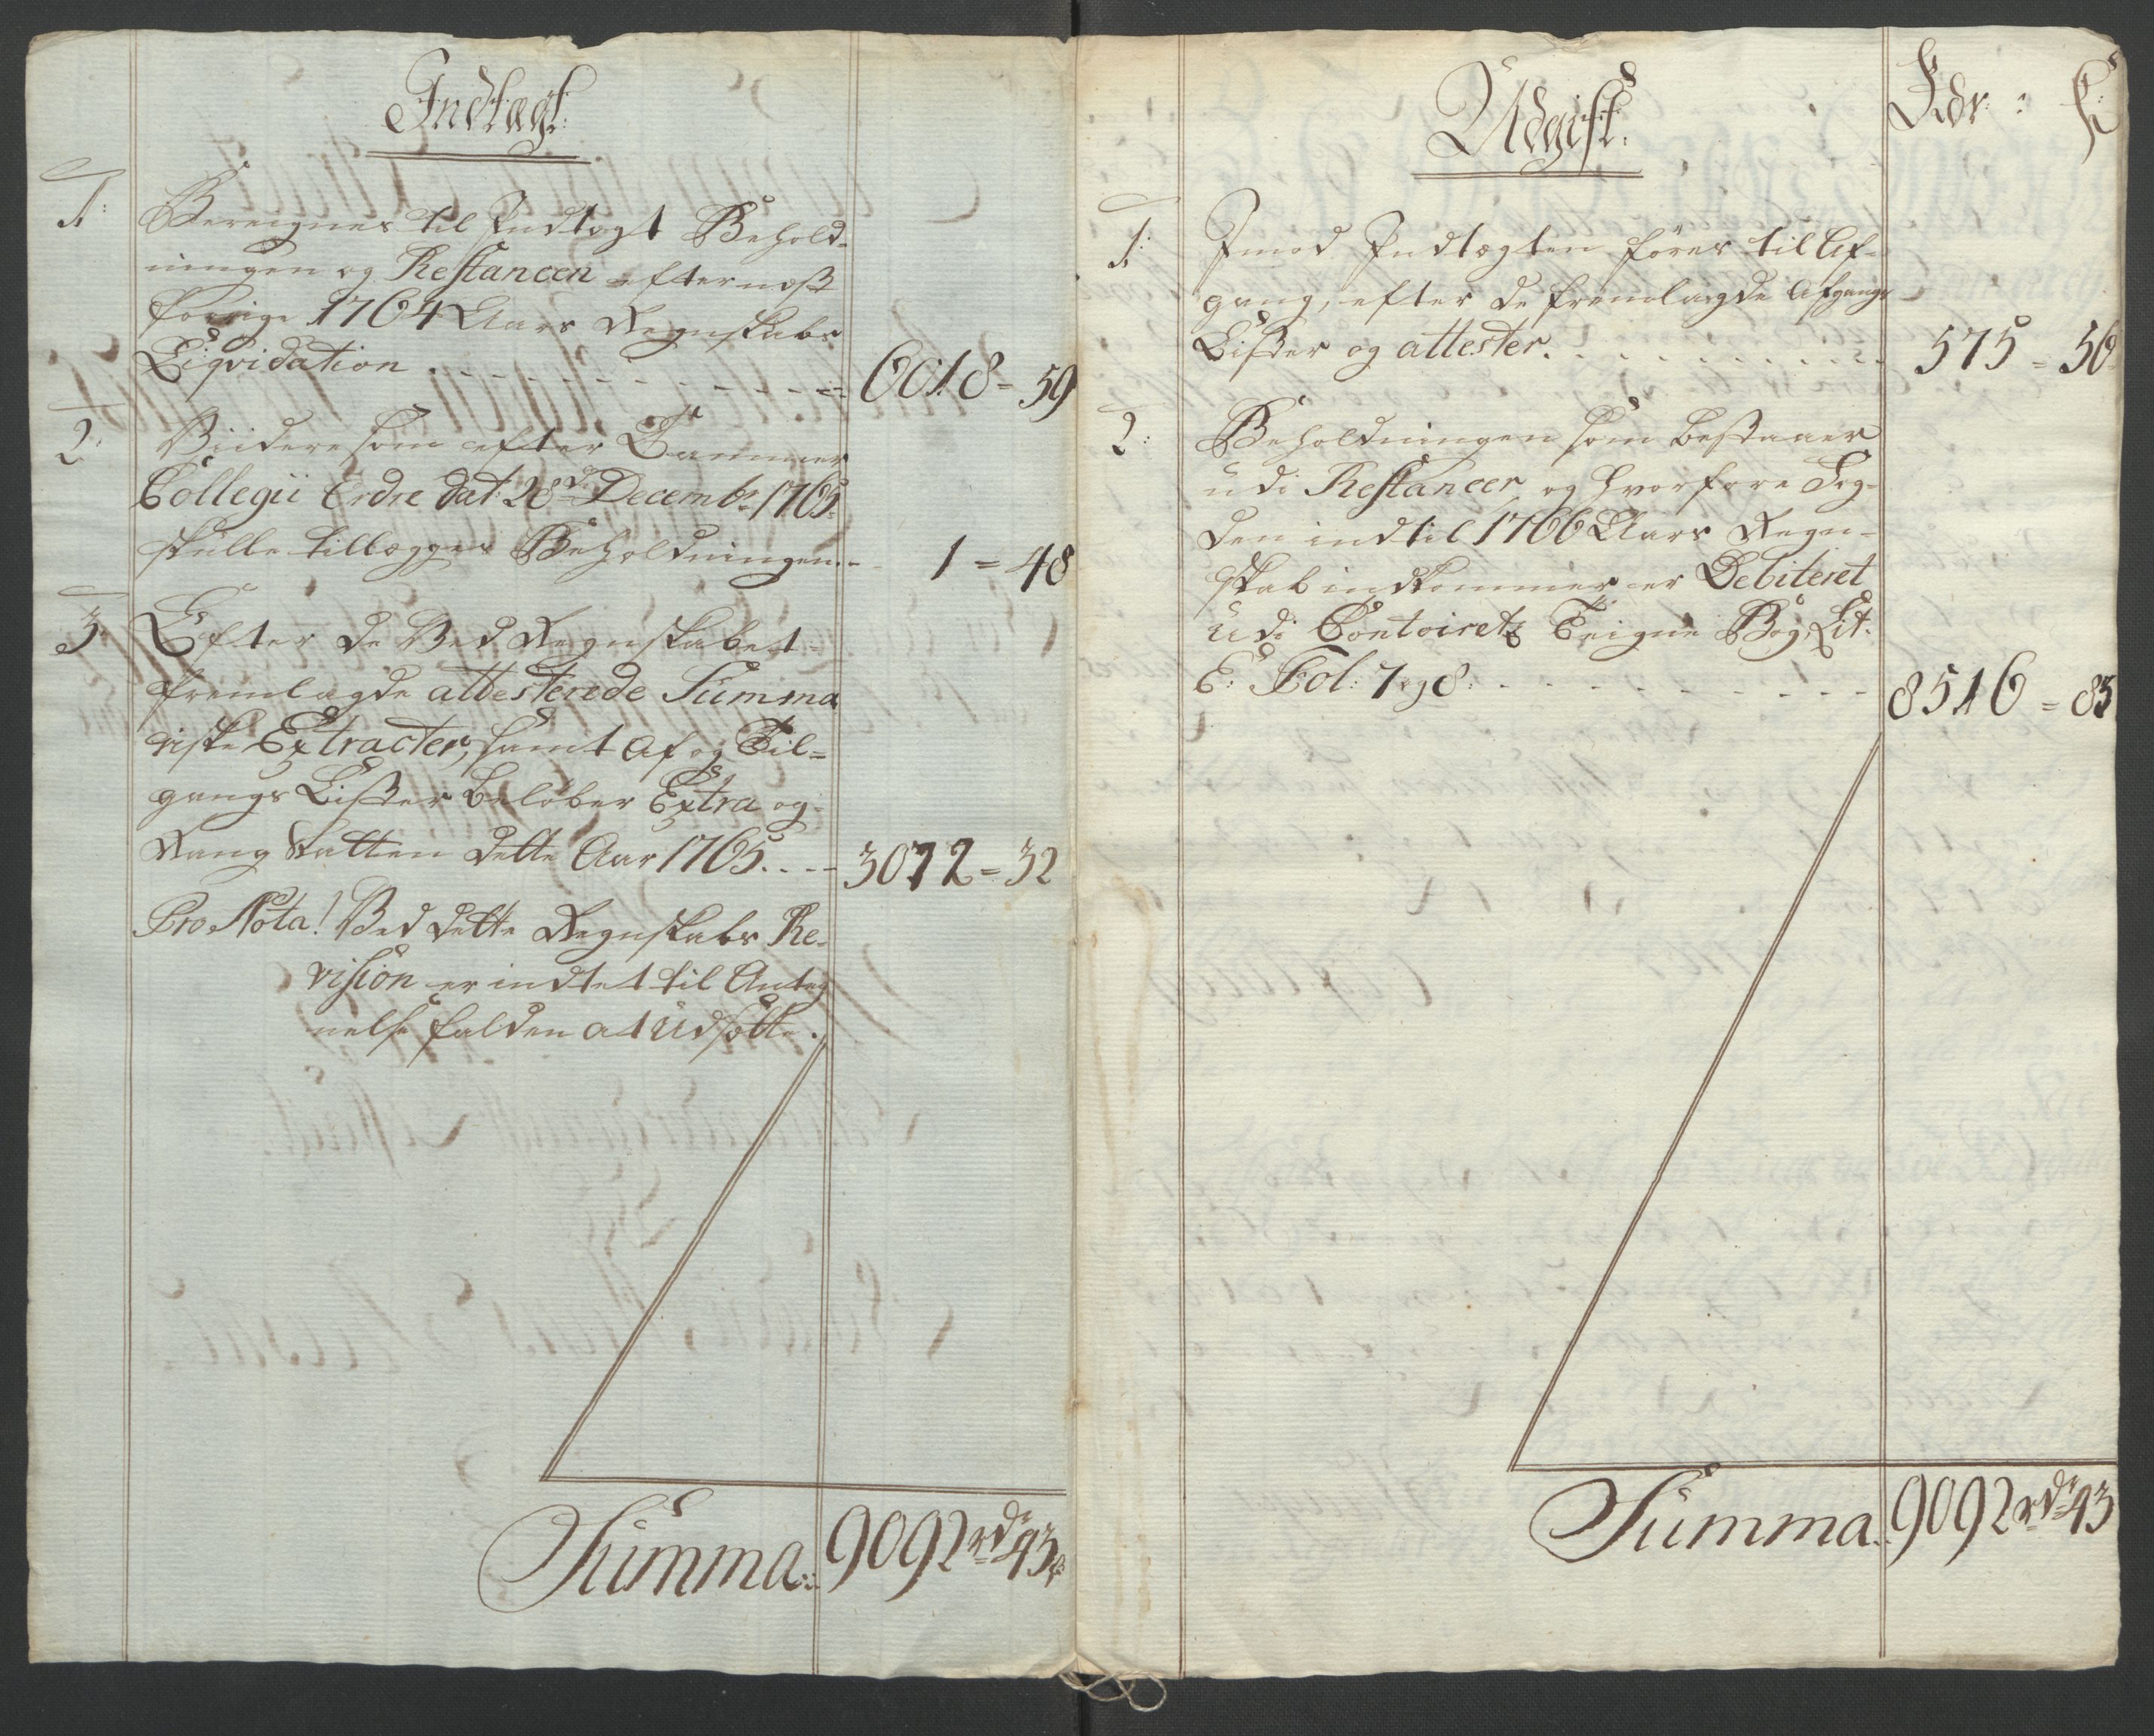 Indtægt:
1: Bereignes til Indtægt Behold-
ningen og Restancen efter næst
forrige 1764 Aars Regnskabs
Liqvidation . - - - - - - - 6018 = 59
2: Viidere som efter Cammer
Collegii Ordre dat: 28de Decembr 1765.
skulle tillægges Beholdningen - - 1 = 48
3. Efter de Ved Regnskabet
fremlagde attesterede Summa
riske Extracter, samt Af og Til-
gangs Lister beløber Extra og
Rang Skatten dette Aar 1765. - - - 3072 = 32
Pro Nota! Ved dette Regnskabs Re-
vision er indtet til Anteg
nelse falden at Udsætte.
Summa: 9092 rd 43
Udgift:
Rdr: ß
1: Imod Indtægten føres til Af-
gang, efter de fremlagde Afgangs
Lister og attester. - - - - - - 575 = 56
2: Beholdningen som bestaaer
udi Restancer, og hvorfore Fog-
den indtil 1766 Aars Regn-
skab indkommer er Debiteret
udi Contoirets Teigne Bog, Lit:
E: Fol: 7 og 8: - - - - - - 8516 = 83
Summa. 9092 rd 43